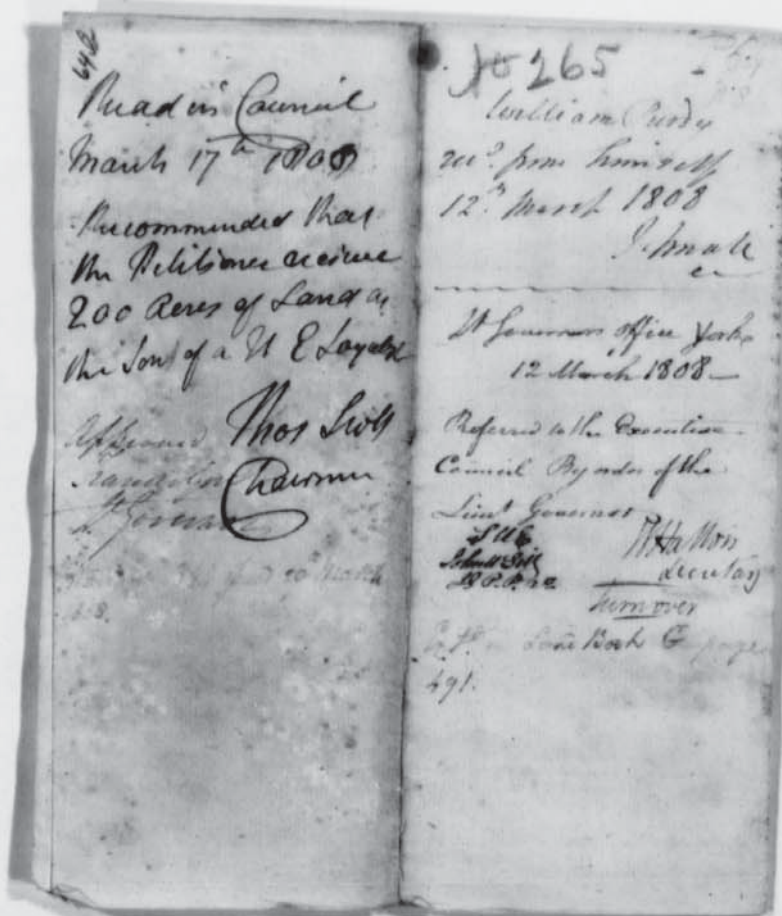 642
Read in Council
March 17th 1808
Recommended that
the Petitioner receive
200 Acres of Land as
the Son of a U E Loyalist
Thos Scott
Chairman
Approved
Lt Governor
No 265
William Purdy
recd from himself
12th March 1808
J. Small
Lt Governors office York
12 March 1808
Referred to the Executive
Council By order of the
Lieut Governor
S U E
Wm Halton
Secretary
Turn over
Land Book G page
491.